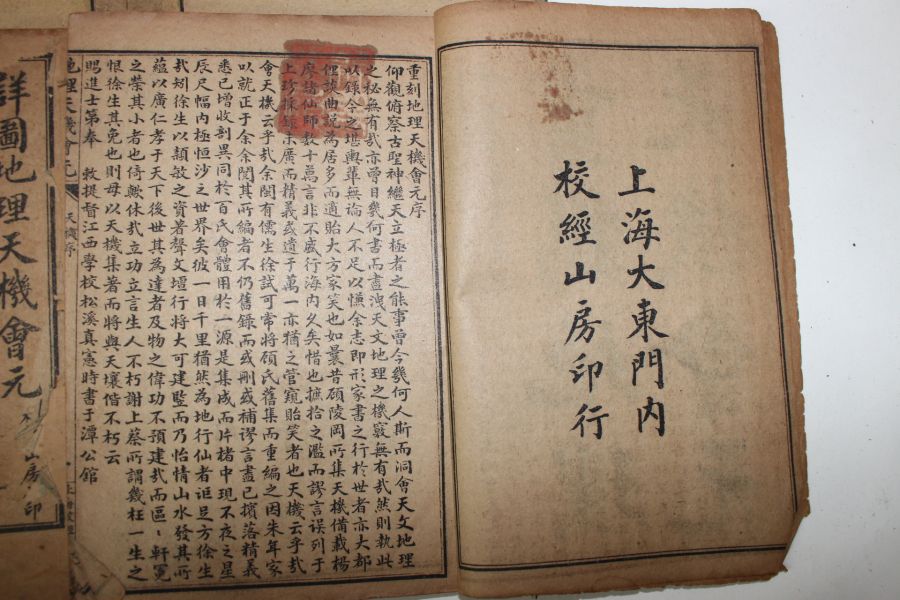 上海大東門內
校經山房印行
重刻地理天機會元序
仰觀俯察古聖神繼天立極者之能事曾今幾何人斯而洞會天文地理
之秘無有哉亦曾目幾何書而盡洩天文地理之機竅無有哉然則執此
以錄今之堪輿輩無論人不足以愜余志即形家書之行於世者亦大都
俚談曲說為居多而適貽大方家笑也如曩昔顧陵岡所集天機備載楊
廖諸仙師數十萬言非不盛行海內久矣惜也摭拾之濫而謬言误列于
上珍採錄未廣而精義或遺于萬一亦猶之管窺貽笑者也天機云乎哉
會天機云乎哉余閩有儒生徐試可常將顧氏舊集而重編之因朱年家
以就正于余余閱其所編者不仍舊錄而或刪或補謬言盡已擯落精義
悉已增收剖異同於百氏會體用於一源是集成而片楮中現不夜之星
辰尺幅內極恒沙之世界矣彼一日千里猶然為地行仙者詎足方徐生
哉矧徐生以穎敏之資著聲文壇行將大可建豎而乃怡情山水發其所
蘊以廣仁孝于天下後世其為達者及物之偉功不預建哉而區區軒冕
之榮其小者也倚歟休哉立功立言生人不朽謝上蔡所謂幾枉一生之
恨徐生其免也則毋以天機集著而將與天壤偕不朽云
賜進士第奉 敕提督江西學校松溪真憲時書于潭公館
地理天機會元
天機序
詳圖地理天機會元
山房印